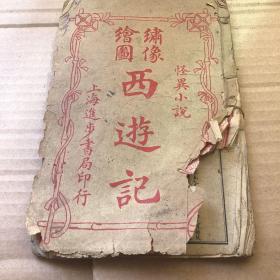 怪異小說
繡像
繪圖
西遊記
上海進步書局印行